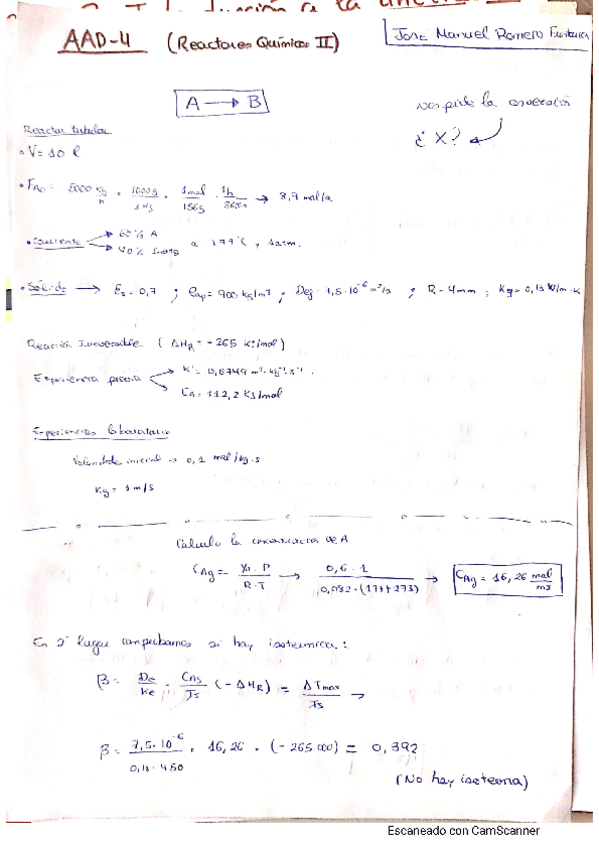 AAD-4 (Reactores Químicos II)
Jose Manuel Romero
A → B
nos pide la conversión
¿ X?
Reactor tubular
• V = 10 l
• FA0 = 5000 kg/h · 1000g/1kg · 1mol/156g · 1h/3600s → 8,9 mol/s.
• Corriente → 60% A
→ 40% Inerte a 177°C, 1atm.
• Sólido → Es = 0,7 ; ρap = 900 kg/m³ ; Def = 7,5·10⁻⁶ m²/s ; R = 4mm ; Kef = 0,18 W/m·K
Reacción Irreversible. ( ΔHR = -265 KJ/mol)
Experiencia previa → K' = 0,6749 m³·kg⁻¹·s⁻¹.
→ EA = 112,2 KJ/mol
Experiencias laboratorio
Velocidad inicial → 0,1 mol/kg·s
Kg = 1 m/s
Calculo la concentración de A
CAg = y0 · P / R·T → 0,6 · 1 / 0,082 · (177+273) → CAg = 16,26 mol/m3
En 2° lugar comprobamos si hay isotermica :
β = De/Ke · CAs/Ts (-ΔHR) = ΔTmax/Ts →
β = 7,5·10⁻⁶/0,18·450 · 16,26 · (-265.000) = 0,392
(No hay isoterma)
Escaneado con CamScanner